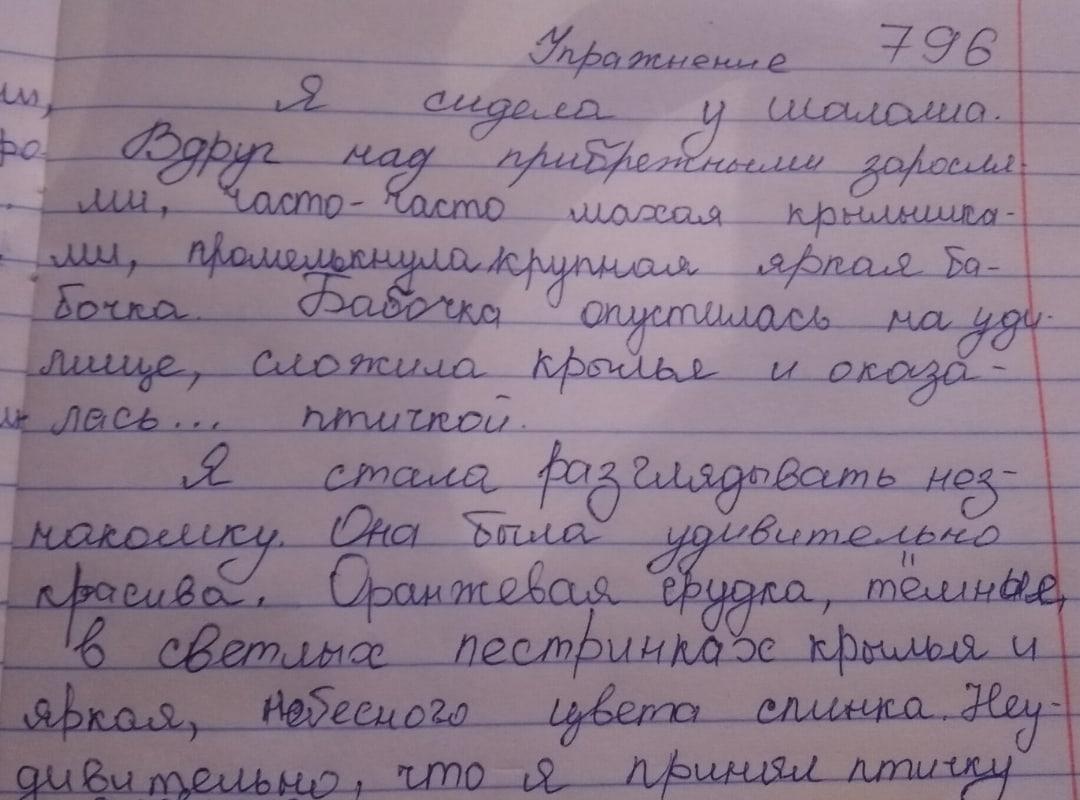 Упражнение 796
Я сидела у шалаша.
Вдруг над прибрежными заросля-
ми, часто-часто махая крылышка-
ми, промелькнула крупная яркая ба-
бочка. Бабочка опустилась на уди-
лище, сложила крылья и оказа-
лась... птичкой.
Я стала разглядывать нез-
накомку. Она была удивительно
красива. Оранжевая грудка, тёмные,
в светлых пестринках крылья и
яркая, небесного цвета спинка. Неу-
дивительно, что я принял птичку